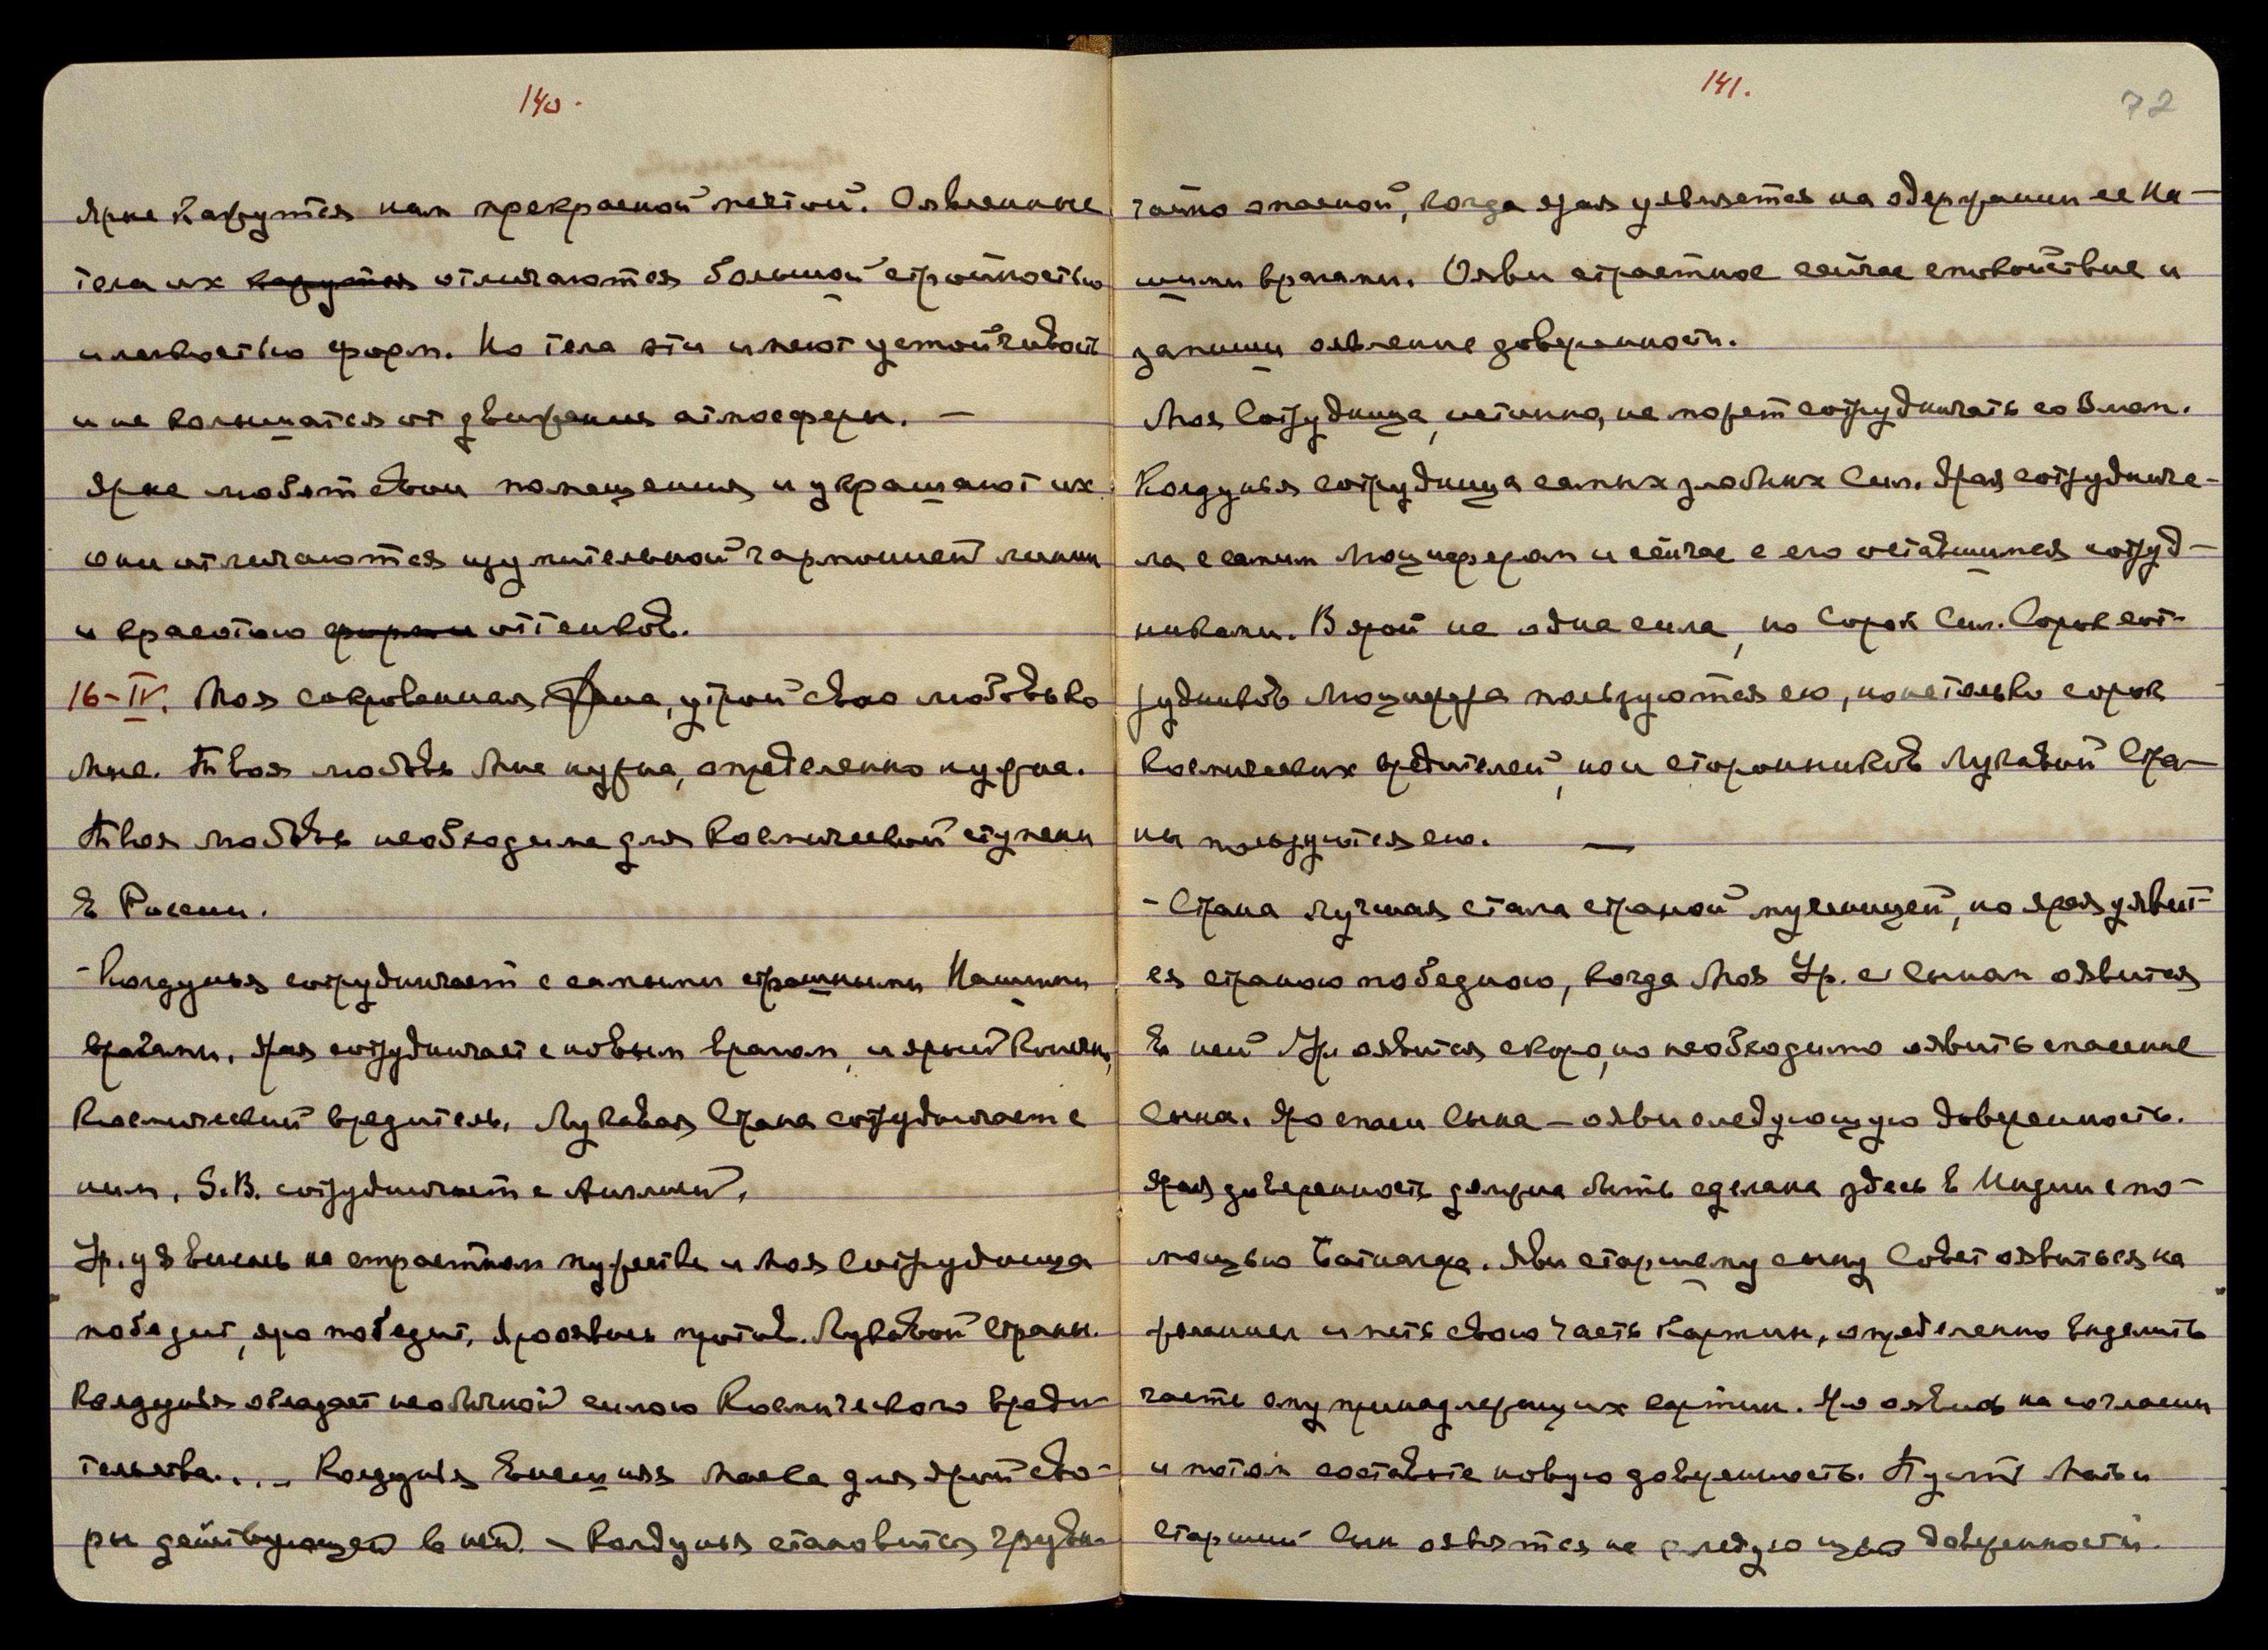 140.
Ярые кажутся нам прекрасной мечтой. Оявленные
тела их кажутся отличаются большой стройностью
и легкостью форм. Но тела эти имеют устойчивость
и не колышатся от движения атмосферы. —
Ярые любят свои помещения и украшают их
они отличаются изумительной гармонией линии
и красотою формы оттенков.
16-IV. Моя сокровенная Жена, утрой свою любовь ко
Мне. Твоя любовь Мне нужна, определенно нужна.
Твоя любовь необходима для Космической ступени
в России.
- Колдунья сотрудничает с самыми страшными Нашими
врагами. Ярая сотрудничает с новым врагом, и ярый конечно,
Космический вредитель. Лукавая Страна сотрудничает с
ним. S.B. сотрудничает с Англией.
Ур. уявились на страстном мужестве и Моя Сотрудница
победит, яро победит. Яро оявись против Лукавой Страны.
Колдунья обладает необычной силою Космического вреди-
тельства... – Колдунья внешняя маска для ярой сво-
ры действующей в ней. – Колдунья становится чрезвы-
141.
72
чайно опасной, когда ярая уявляется на одержании ее На-
шими врагами. Ояви страстное сейчас спокойствие и
запиши оявление доверенности.
Моя Сотрудница, истинно, не может сотрудничать со Злом.
Колдунья сотрудница самых злобных Сил. Ярая сотруднича-
ла с самим Люцифером и сейчас с его оставшимися сотруд-
никами. В ярой не одна сила, но Сорок Сил. Сорок сот-
рудников Люцифера пользуются ею, но не только сорок
космических вредителей, но и сторонников Лукавой Стра-
ны пользуются ею. —
- Страна Лучшая стала страной мученицей, но ярая уявит-
ся страною победною, когда Моя Ур. с Сыном оявится
в ней Ур. оявится скоро, но необходимо оявить спасение
Сына. Яро спаси Сына – ояви следующую доверенность.
Ярая доверенность должна быть сделана здесь в Индии с по-
мощью Яви старшему сыну Совет оявиться на
решении иметь свою часть картин, определенно выделить
часть ему принадлежащих картин. Яро оявись на согласии
и потом составьте новую доверенность. Пусть Мать и
Старший Сын оявятся на следующей доверенности.